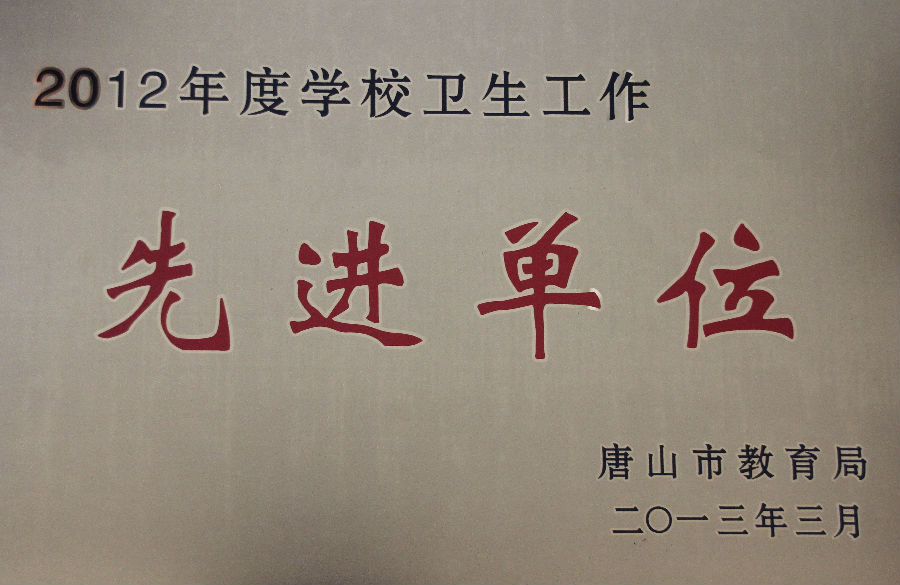 2012年度学校卫生工作
先进单位
唐山市教育局
二〇一三年三月